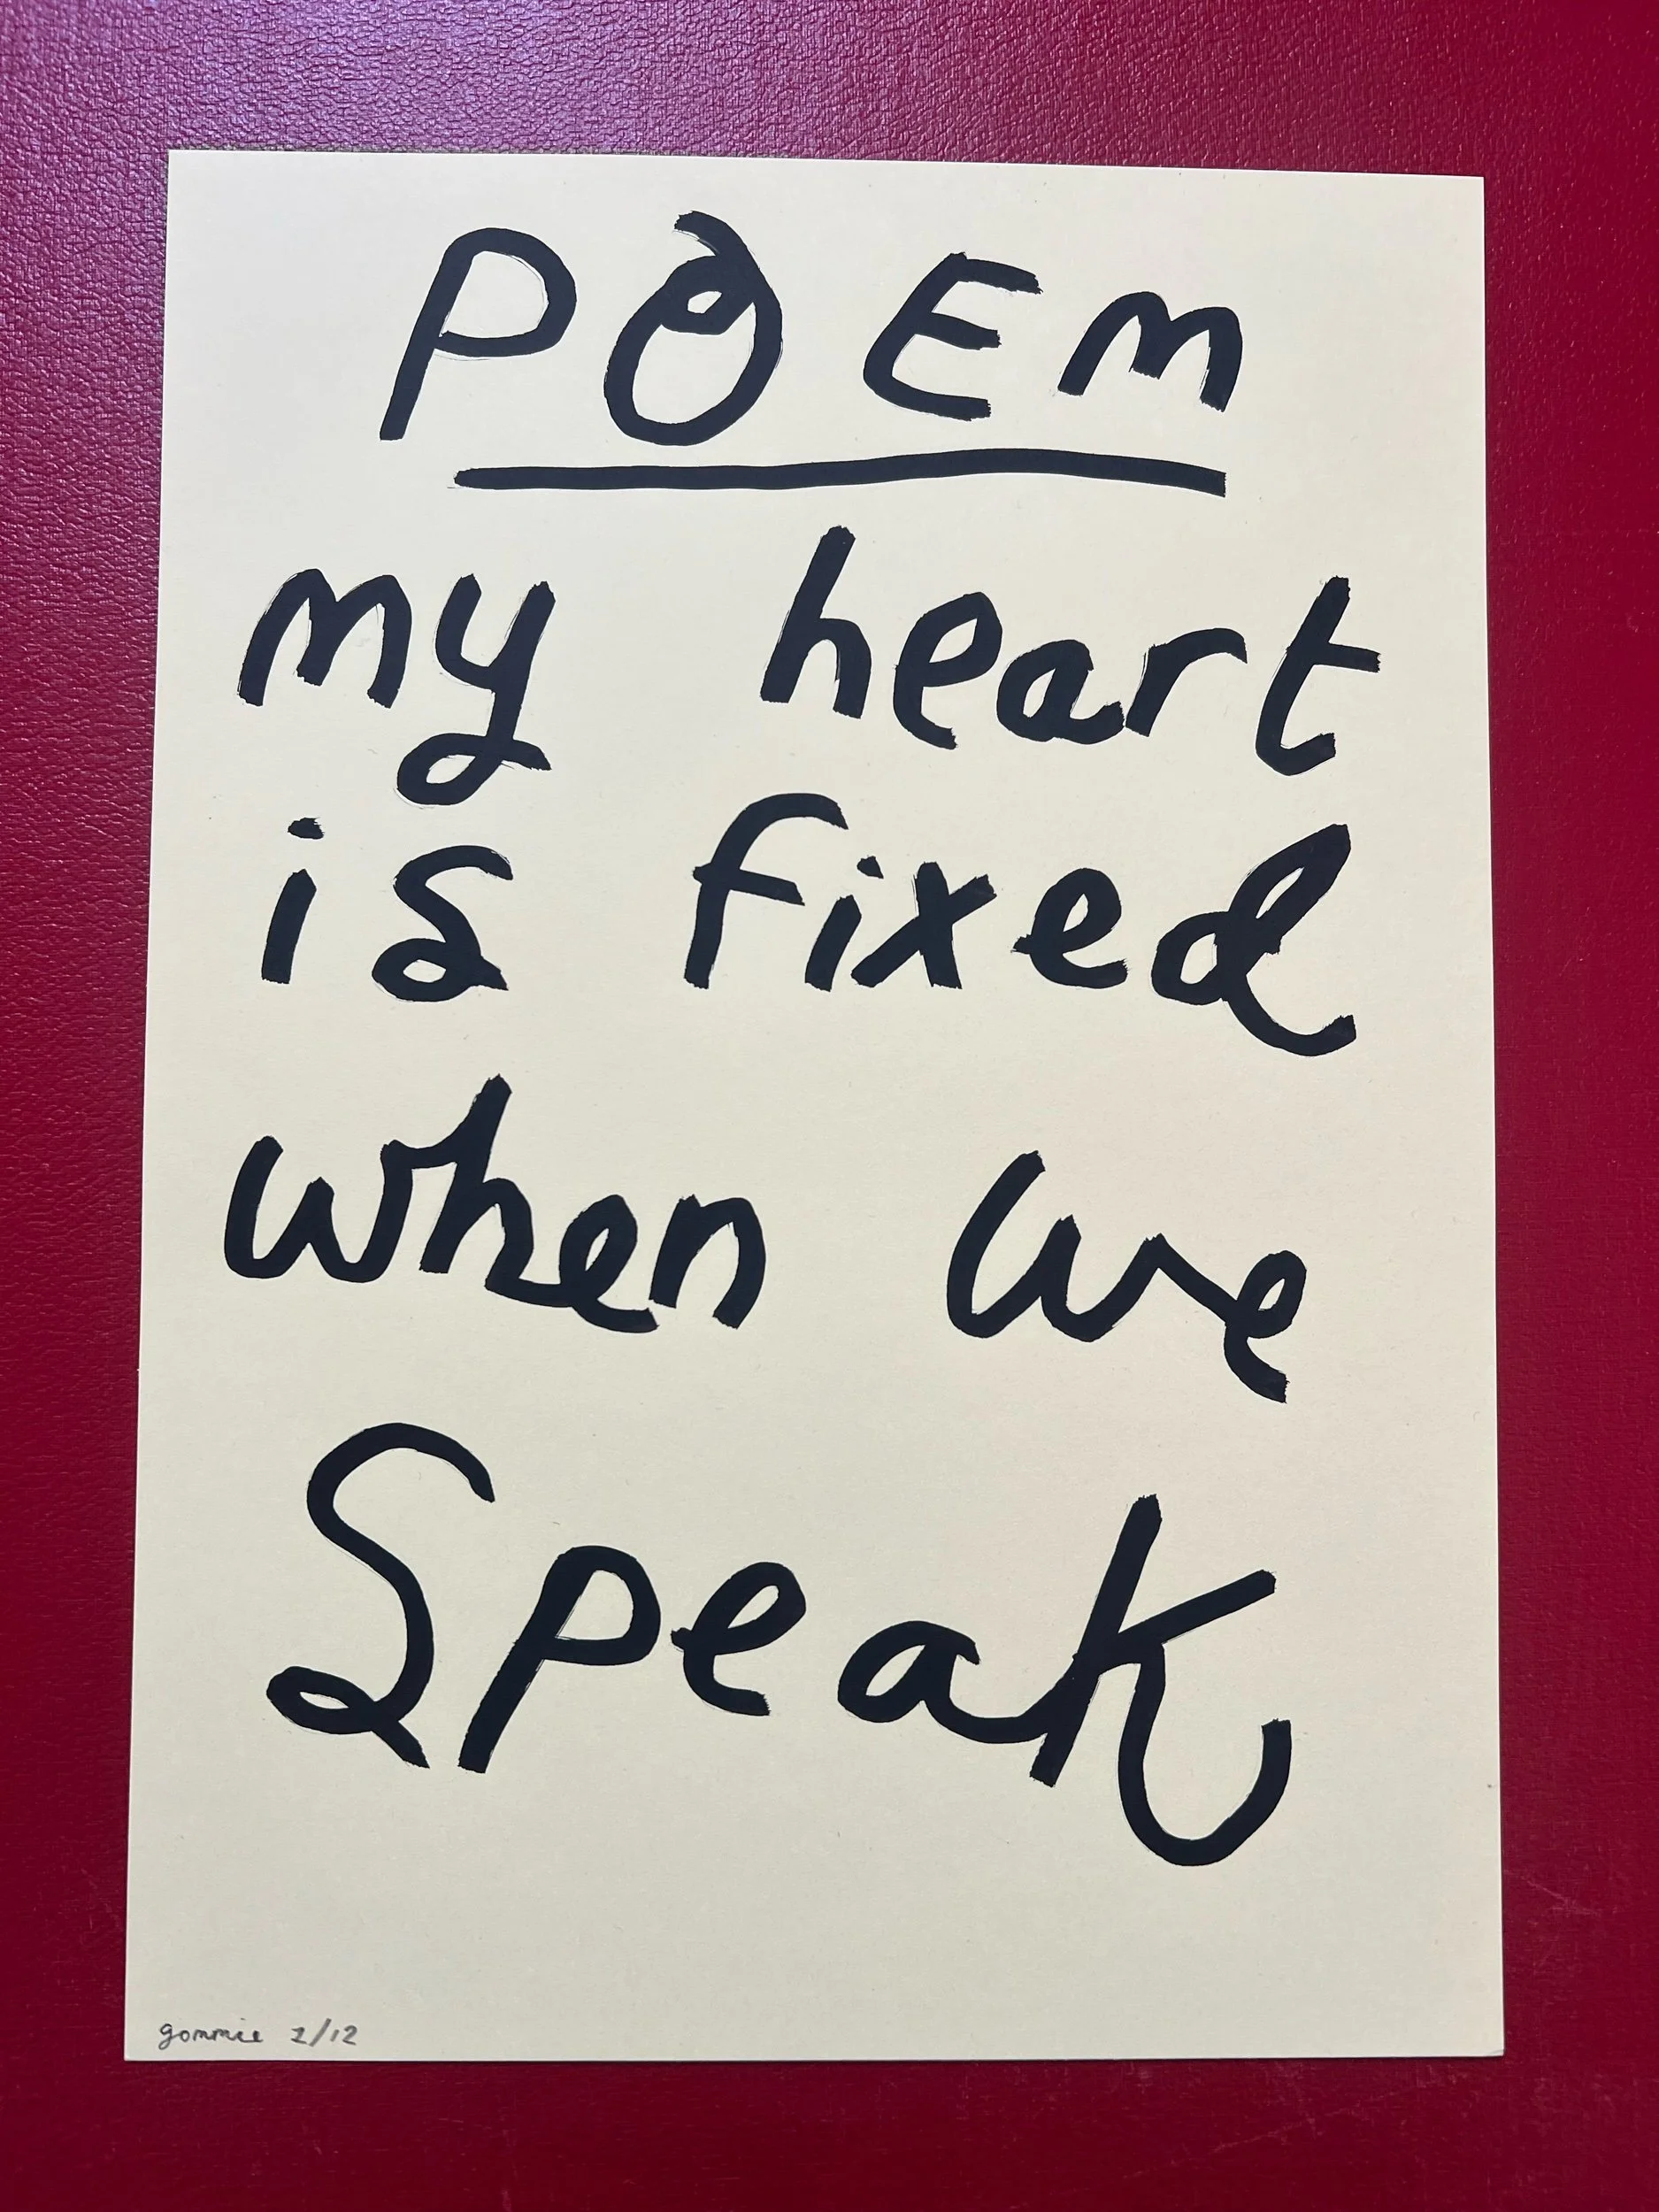 POEM
my heart
is fixed
when we
Speak
gommie 1/12